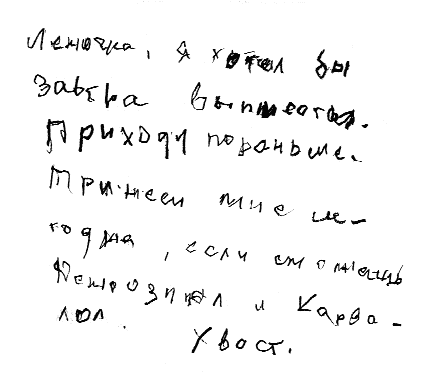 Леночка, я хотел бы
завтра выписаться.
Приходи пораньше.
Принеси мне се-
годня, если сможешь
и Карва-
лол.
Хвост.